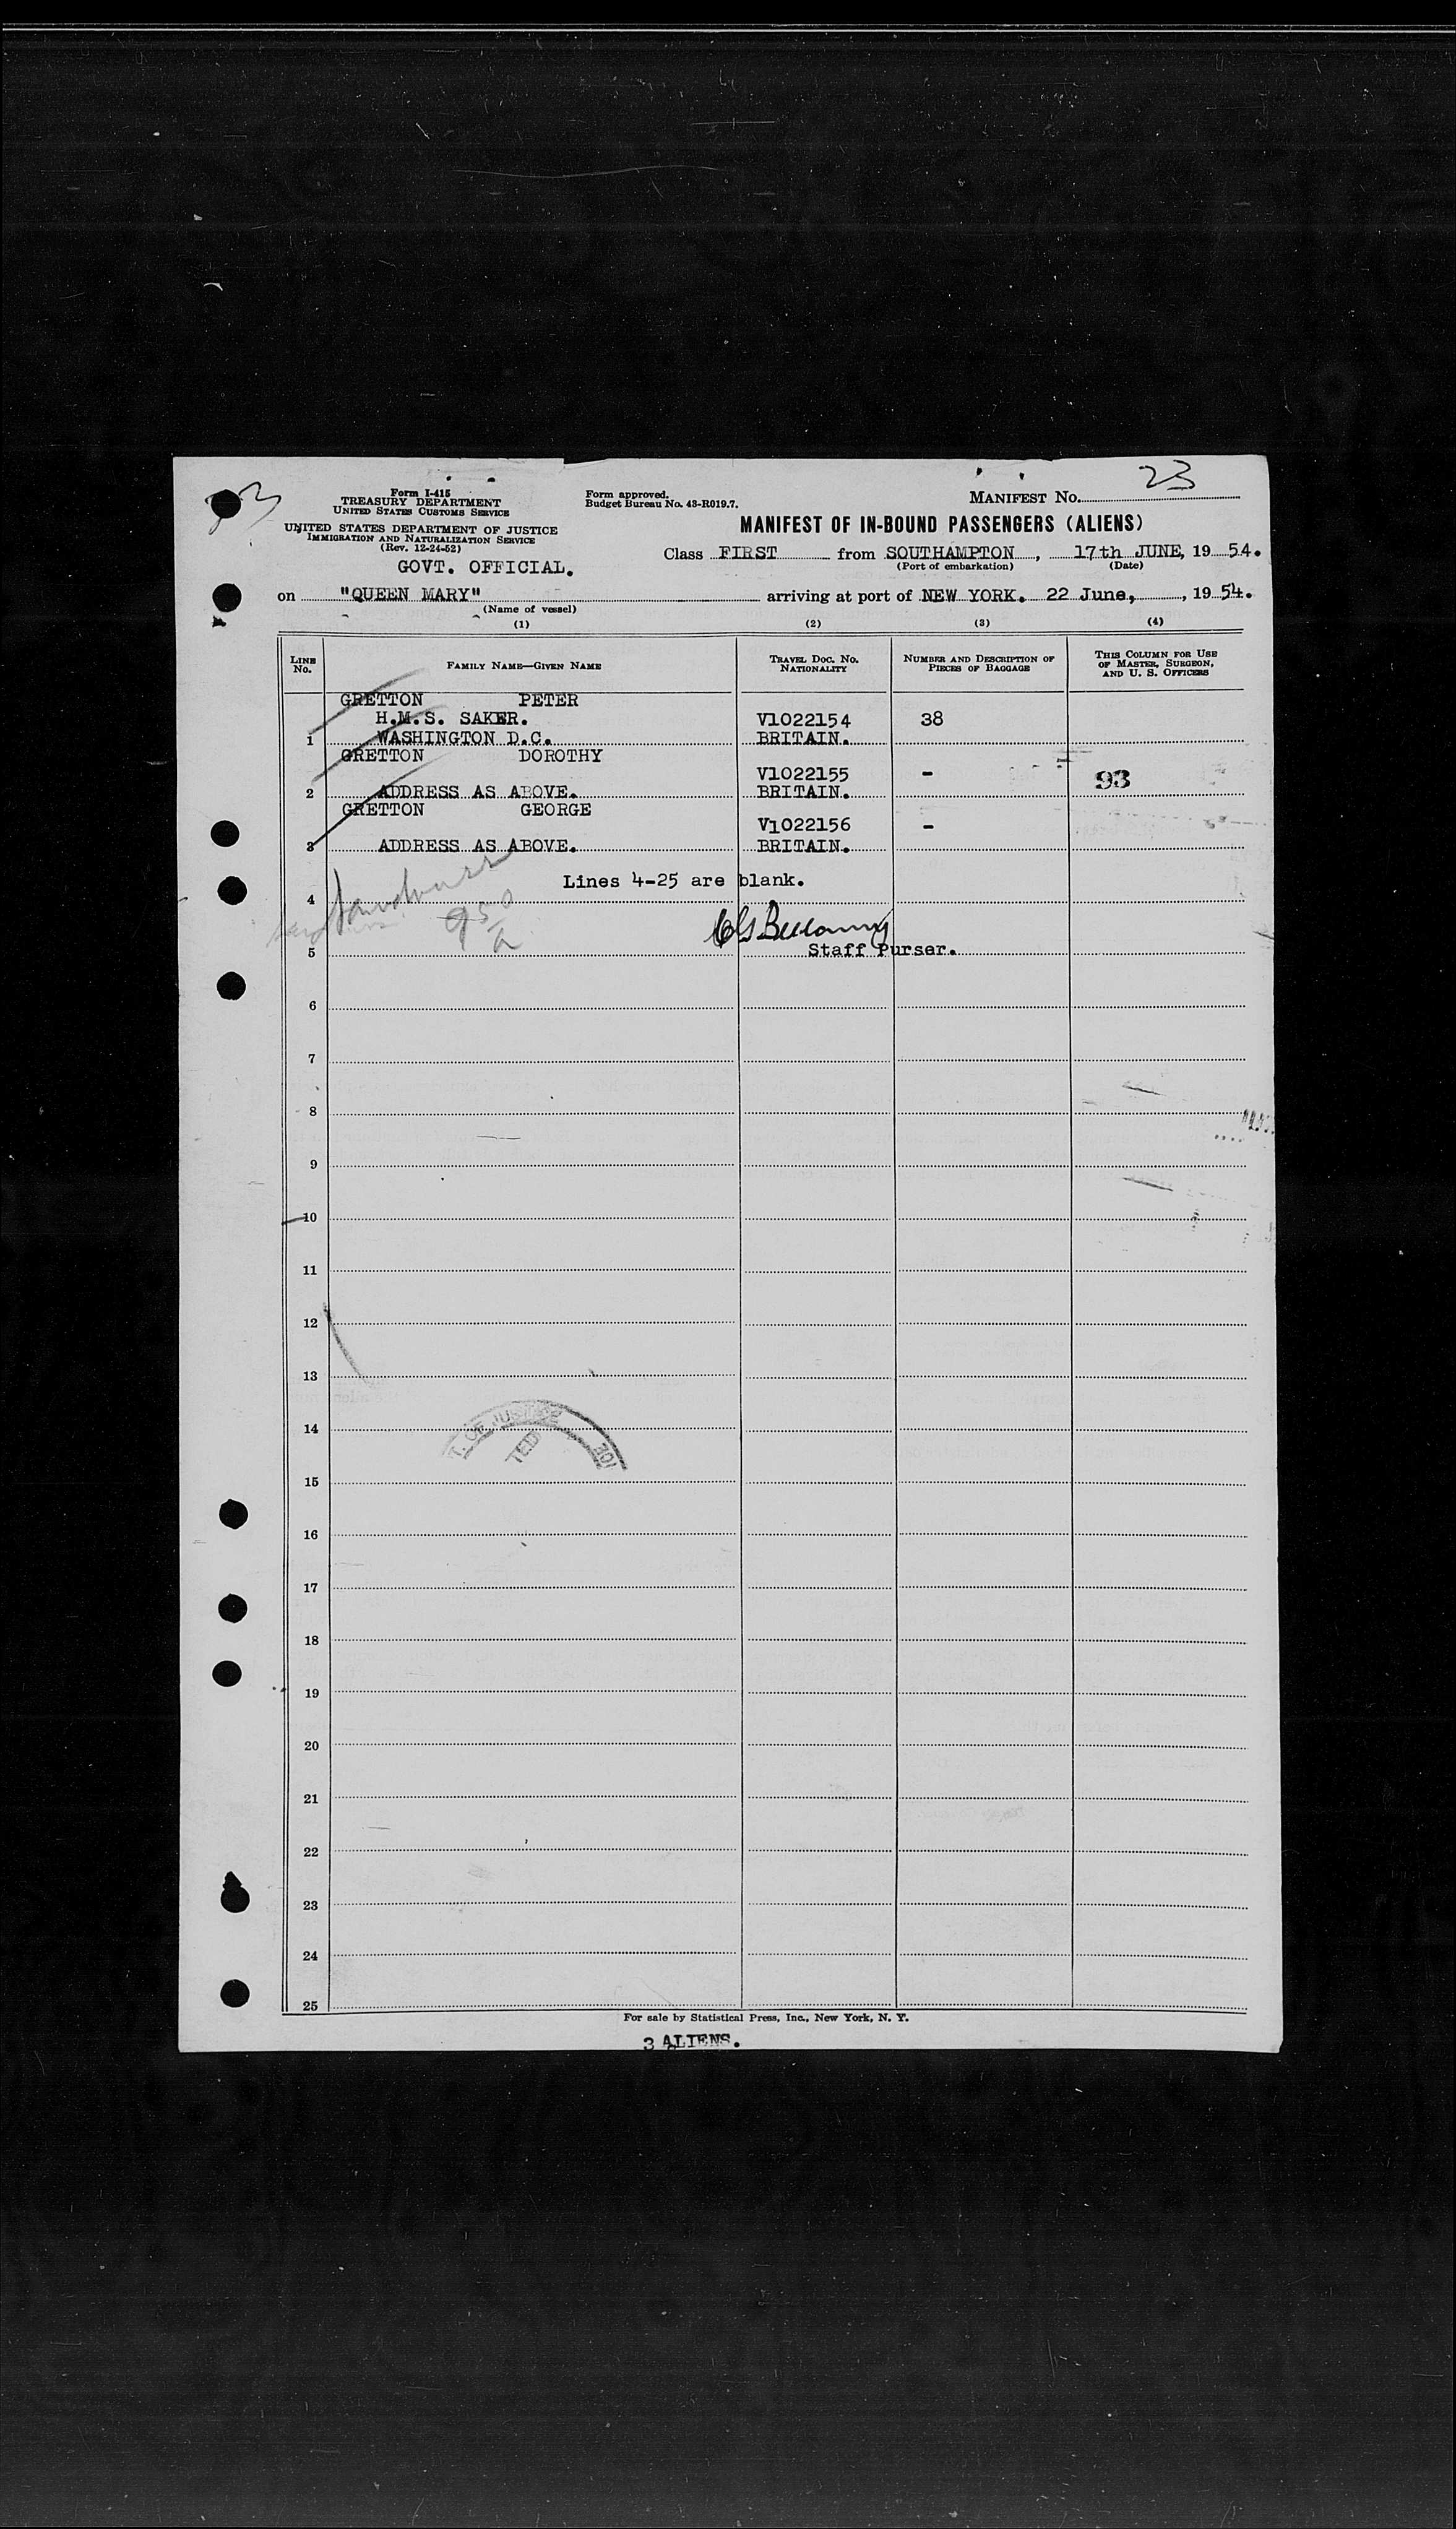 23
Form I-415
TREASURY DEPARTMENT
UNITED STATES CUSTOMS SERVICE
UNITED STATES DEPARTMENT OF JUSTICE
IMMIGRATION AND NATURALIZATION SERVICE
(Rev. 12-24-52)
GOVT. OFFICIAL.
Form approved.
Budget Bureau No. 43-R019.7.
MANIFEST NO. 23
MANIFEST OF IN-BOUND PASSENGERS (ALIENS)
Class FIRST from SOUTHAMPTON, 17th JUNE, 19 54.
(Port of embarkation) (Date)
on "QUEEN MARY" arriving at port of NEW YORK. 22 June, , 19 54.
(Name of vessel)
(1) (2) (3) (4)
LINE NO. FAMILY NAME—GIVEN NAME TRAVEL DOC. NO. NATIONALITY NUMBER AND DESCRIPTION OF PIECES OF BAGGAGE THIS COLUMN FOR USE OF MASTER, SURGEON, AND U. S. OFFICERS
GRETTON PETER
H.M.S. SAKER. V1022154 38
1 WASHINGTON D.C. BRITAIN.
GRETTON DOROTHY
V1022155 - 93
2 ADDRESS AS ABOVE. BRITAIN.
GRETTON GEORGE
V1022156 -
3 ADDRESS AS ABOVE. BRITAIN.
Lines 4-25 are blank.
4
950
Staff Purser.
5
6
7
8
9
10
11
12
13
T. OF JUSTICE
TED
14
15
16
17
18
19
20
21
22
23
24
25
For sale by Statistical Press, Inc., New York, N. Y.
3 ALIENS.